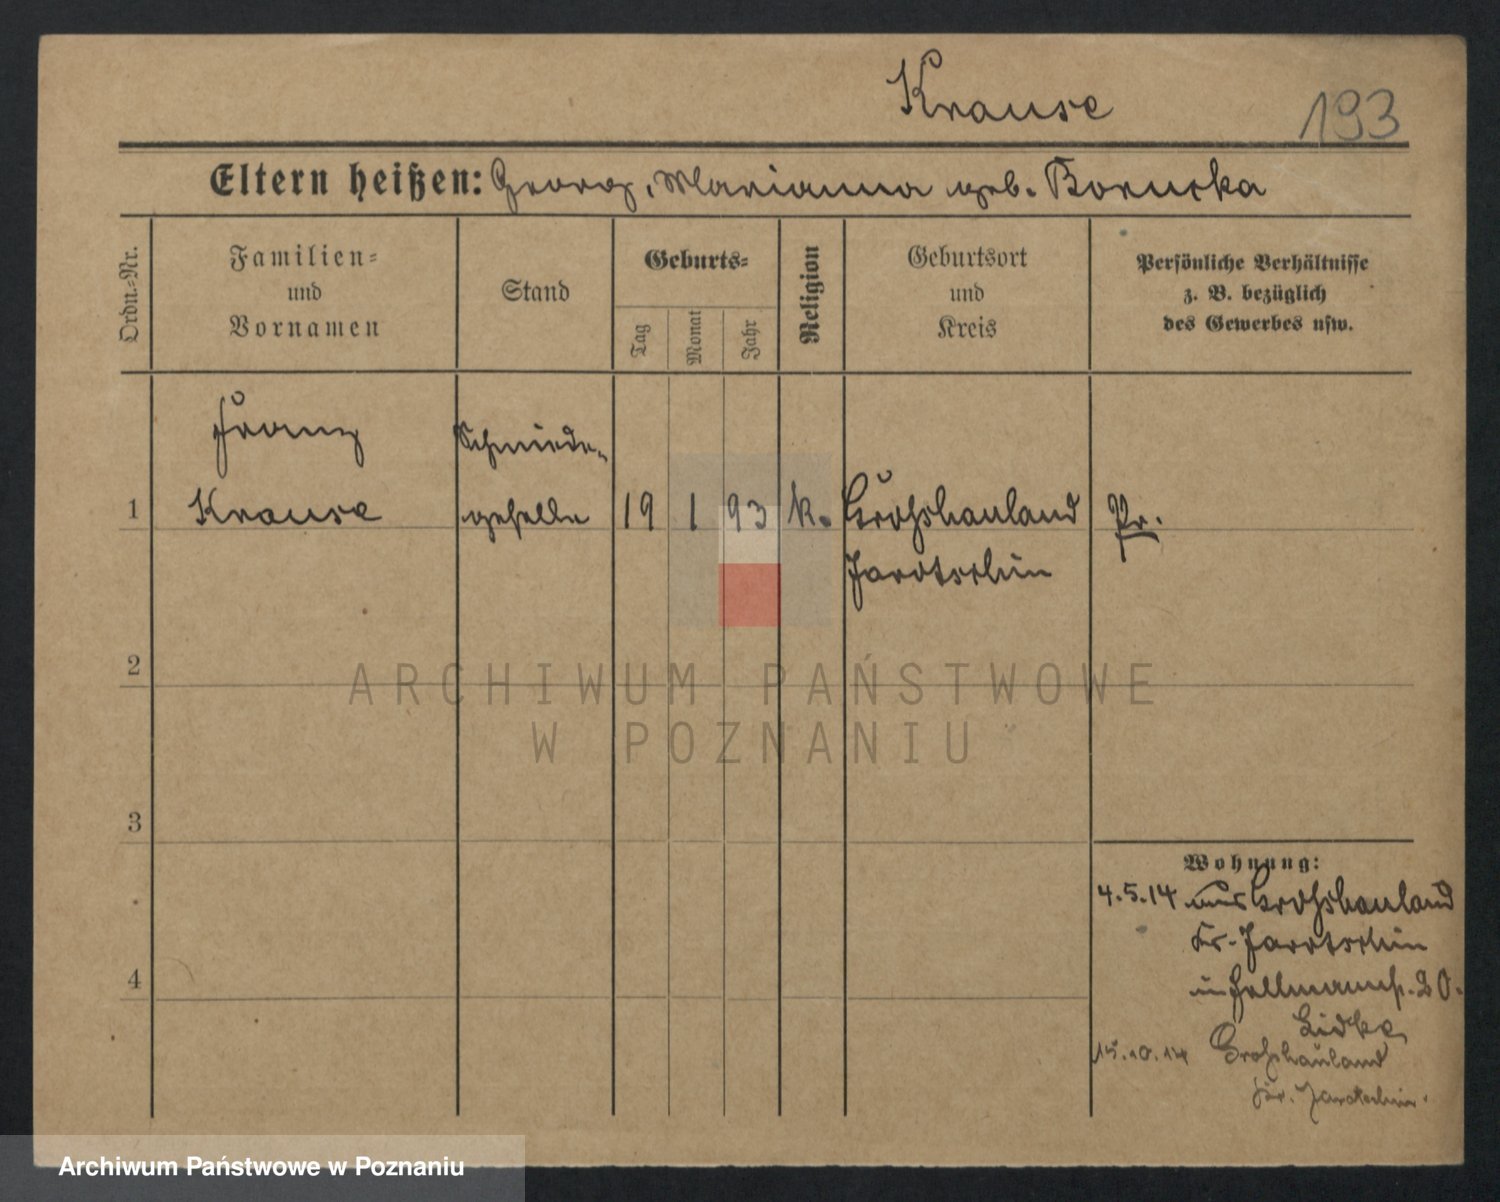 Krause
193
Eltern heißen: Georg, Marianna geb. Boruska
Ordn.-Nr.
Familien-
und
Vornamen
Stand
Geburts-
Tag
Monat
Jahr
Religion
Geburtsort
und
Kreis
Persönliche Verhältnisse
z. B. bezüglich
des Gewerbes usw.
Franz
Schmiede-
1 Krause geselle 19 1 93 k. Großhauland Pr.
Jarotschin
2
ARCHIWUM PAŃSTWOWE
W POZNANIU
3
Wohnung:
4.5.14 aus Großhauland
Kr. Jarotschin
4
in 20.
15.10.14 Großhauland
Kr. Jarotschin.
Archiwum Państwowe w Poznaniu